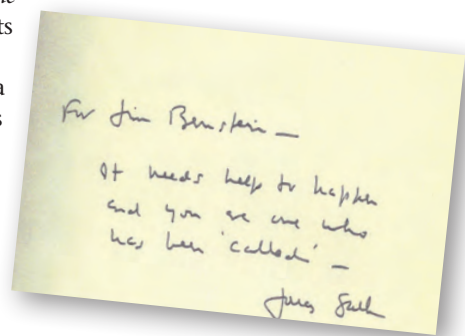 ts
a
s
For Jim Bernstein —
It needs help to happen
and you are one who
has been 'called' —
Jonas Salk